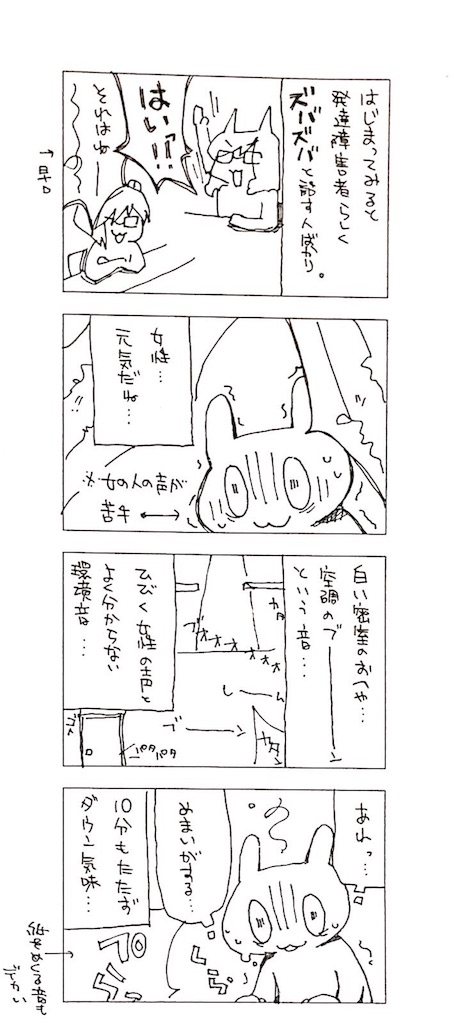 はじまってみると
発達障害者らしく
ズバズバと話す人ばかり。
はい!!?
それはね――
↑早口
女性…
元気だね…
※女の人の声が
苦手←→
白い密室のおへや…
空調のブ――――ン
という音…
カタ
ブオオオオオオ
し――ん
ブ――ン
ガタン
パタパタ
ひびく女性の声と
よく分からない
環境音…
あれっ…
めまいがする…
10分もたたず
ダウン気味…
ペラ
紙をめくる音も
デカい